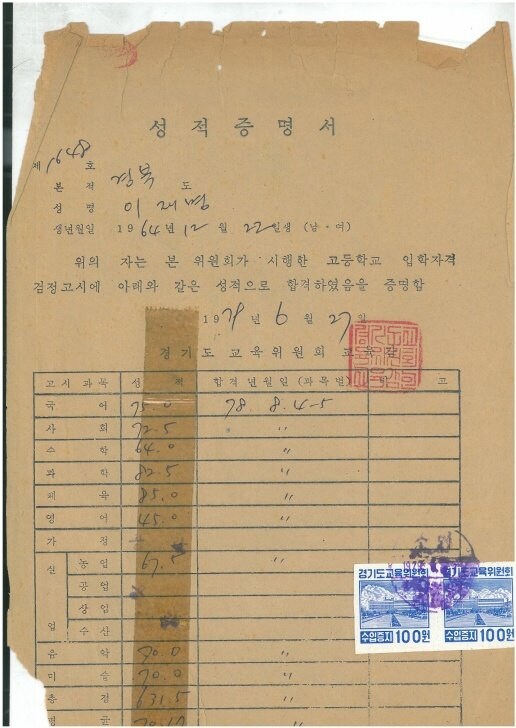 성적증명서
제 호
본적 경북 도
성명 이재명
생년월일 1964년 12월 22일생 (남·여)
위의 자는 본 위원회가 시행한 고등학교 입학자격
검정고시에 아래와 같은 성적으로 합격하였음을 증명함
1979년 6월 27일
경기도 교육위원회 교육감
고시과목 성적 합격년월일 (과목별) 비고
국어 75.0 78. 8. 4-5
사회 72.5 〃
수학 64.0 〃
과학 82.5 〃
체육 85.0 〃
영어 45.0 〃
가정
실업 농업 67.5 〃
공업
상업
수산
음악 70.0 〃
미술 70.0 〃
총점 631.5 〃
평균 〃
경기도교육위원회 경기도교육위원회
수입증지 100원 수입증지 100원